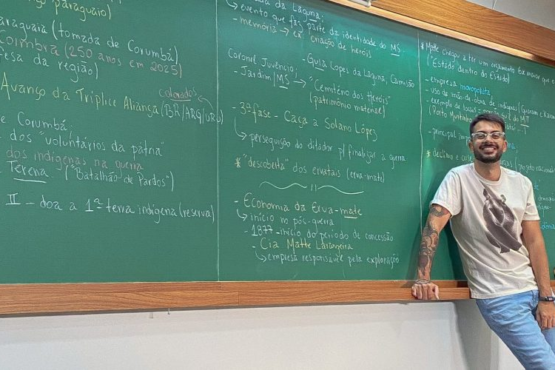 paraguaio)
araguaia (tomada de Corumbá)
Coimbra (250 anos em 2025)
esa da região)
Avanço da Tríplice Aliança (BR/ARG/URU)
colorados
Corumbá
dos "voluntários da pátria"
dos indígenas na guerra
Terena ("Batalhão de Pardos")
II - doa a 1ª terra indígena (reserva)
da Laguna
↳ evento que faz parte da identidade do MS
- memória → criação de heróis
Coronel Juvêncio,
- Guia Lopes da Laguna, Camisão
- Jardim/MS → "Cemitério dos Heróis"
(patrimônio material)
- 3ª fase - Caça a Solano López
↳ perseguição do ditador p/ finalizar a guerra
* "descoberta" dos ervatais (erva-mate)
- Economia da Erva-mate
↳ início no pós-guerra
- 1877 - início do período de concessão
- Cia Matte Laranjeira
↳ empresa responsável pela exploração
* Mate chegou a ter um orçamento
(Estado dentro do Estado)
- empresa
- uso da mão de obra de indígenas